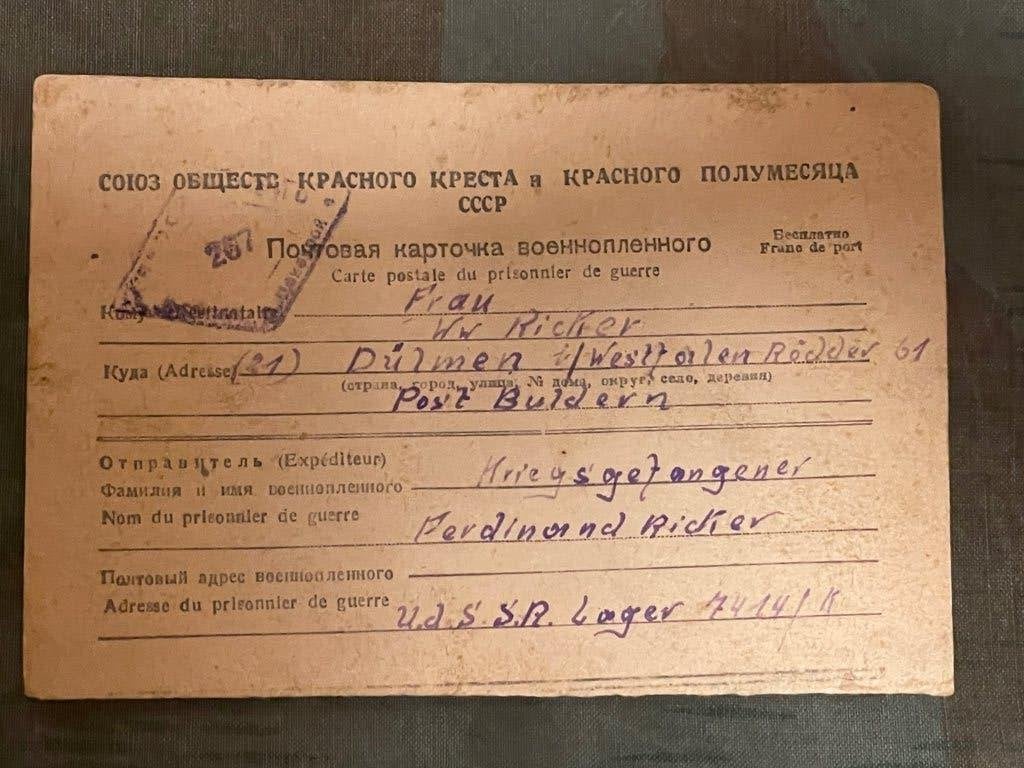 СОЮЗ ОБЩЕСТВ КРАСНОГО КРЕСТА и КРАСНОГО ПОЛУМЕСЯЦА
СССР
267
Почтовая карточка военнопленного
Бесплатно
Franc de port
Carte postale du prisonnier de guerre
Кому (Destinataire) Frau
Ww Ricker
Куда (Adresse) (21) Dülmen i/Westfalen Rödder 61
(страна, город, улица, № дома, округ, село, деревня)
Post Buldern
Отправитель (Expéditeur)
Фамилия и имя военнопленного Kriegsgefangener
Nom du prisonnier de guerre Ferdinand Ricker
Почтовый адрес военнопленного
Adresse du prisonnier de guerre U.d.S.S.R. Lager 7414/K